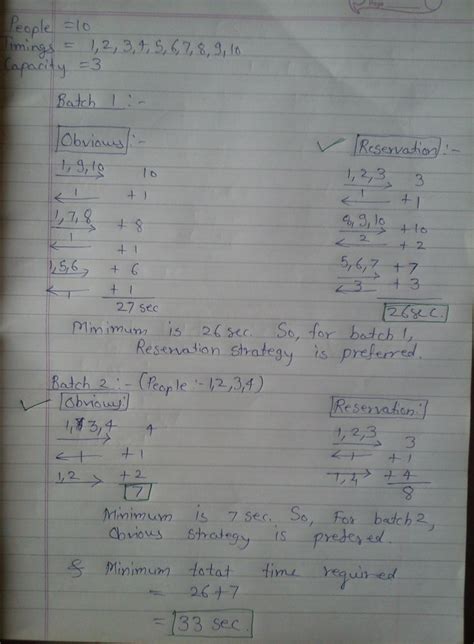 Page
People =10
Timings = 1,2,3,4,5,6,7,8,9,10
Capacity =3
Batch 1 :-
Obvious :-
✓ Reservation :-
1,9,10 → 10
1,2,3 → 3
← 1 + 1
← 1 + 1
1,7,8 → + 8
8,9,10 → + 10
← 1 + 1
← 2 + 2
1,5,6 → + 6
5,6,7 → + 7
← 1 + 1
← 3 + 3
27 sec
26 sec.
Minimum is 26 sec. So, for batch 1,
Reservation strategy is preferred.
Batch 2 :- (People :- 1,2,3,4)
✓ Obvious:
Reservation:
1, 3,4 → 4
1,2,3 → 3
← 1 + 1
← 1 + 1
1,2 → +2
1,4 → + 4
7
8
Minimum is 7 sec. So, For batch 2,
Obvious strategy is prefered.
& Minimum total time required
= 26+7
= 33 sec.